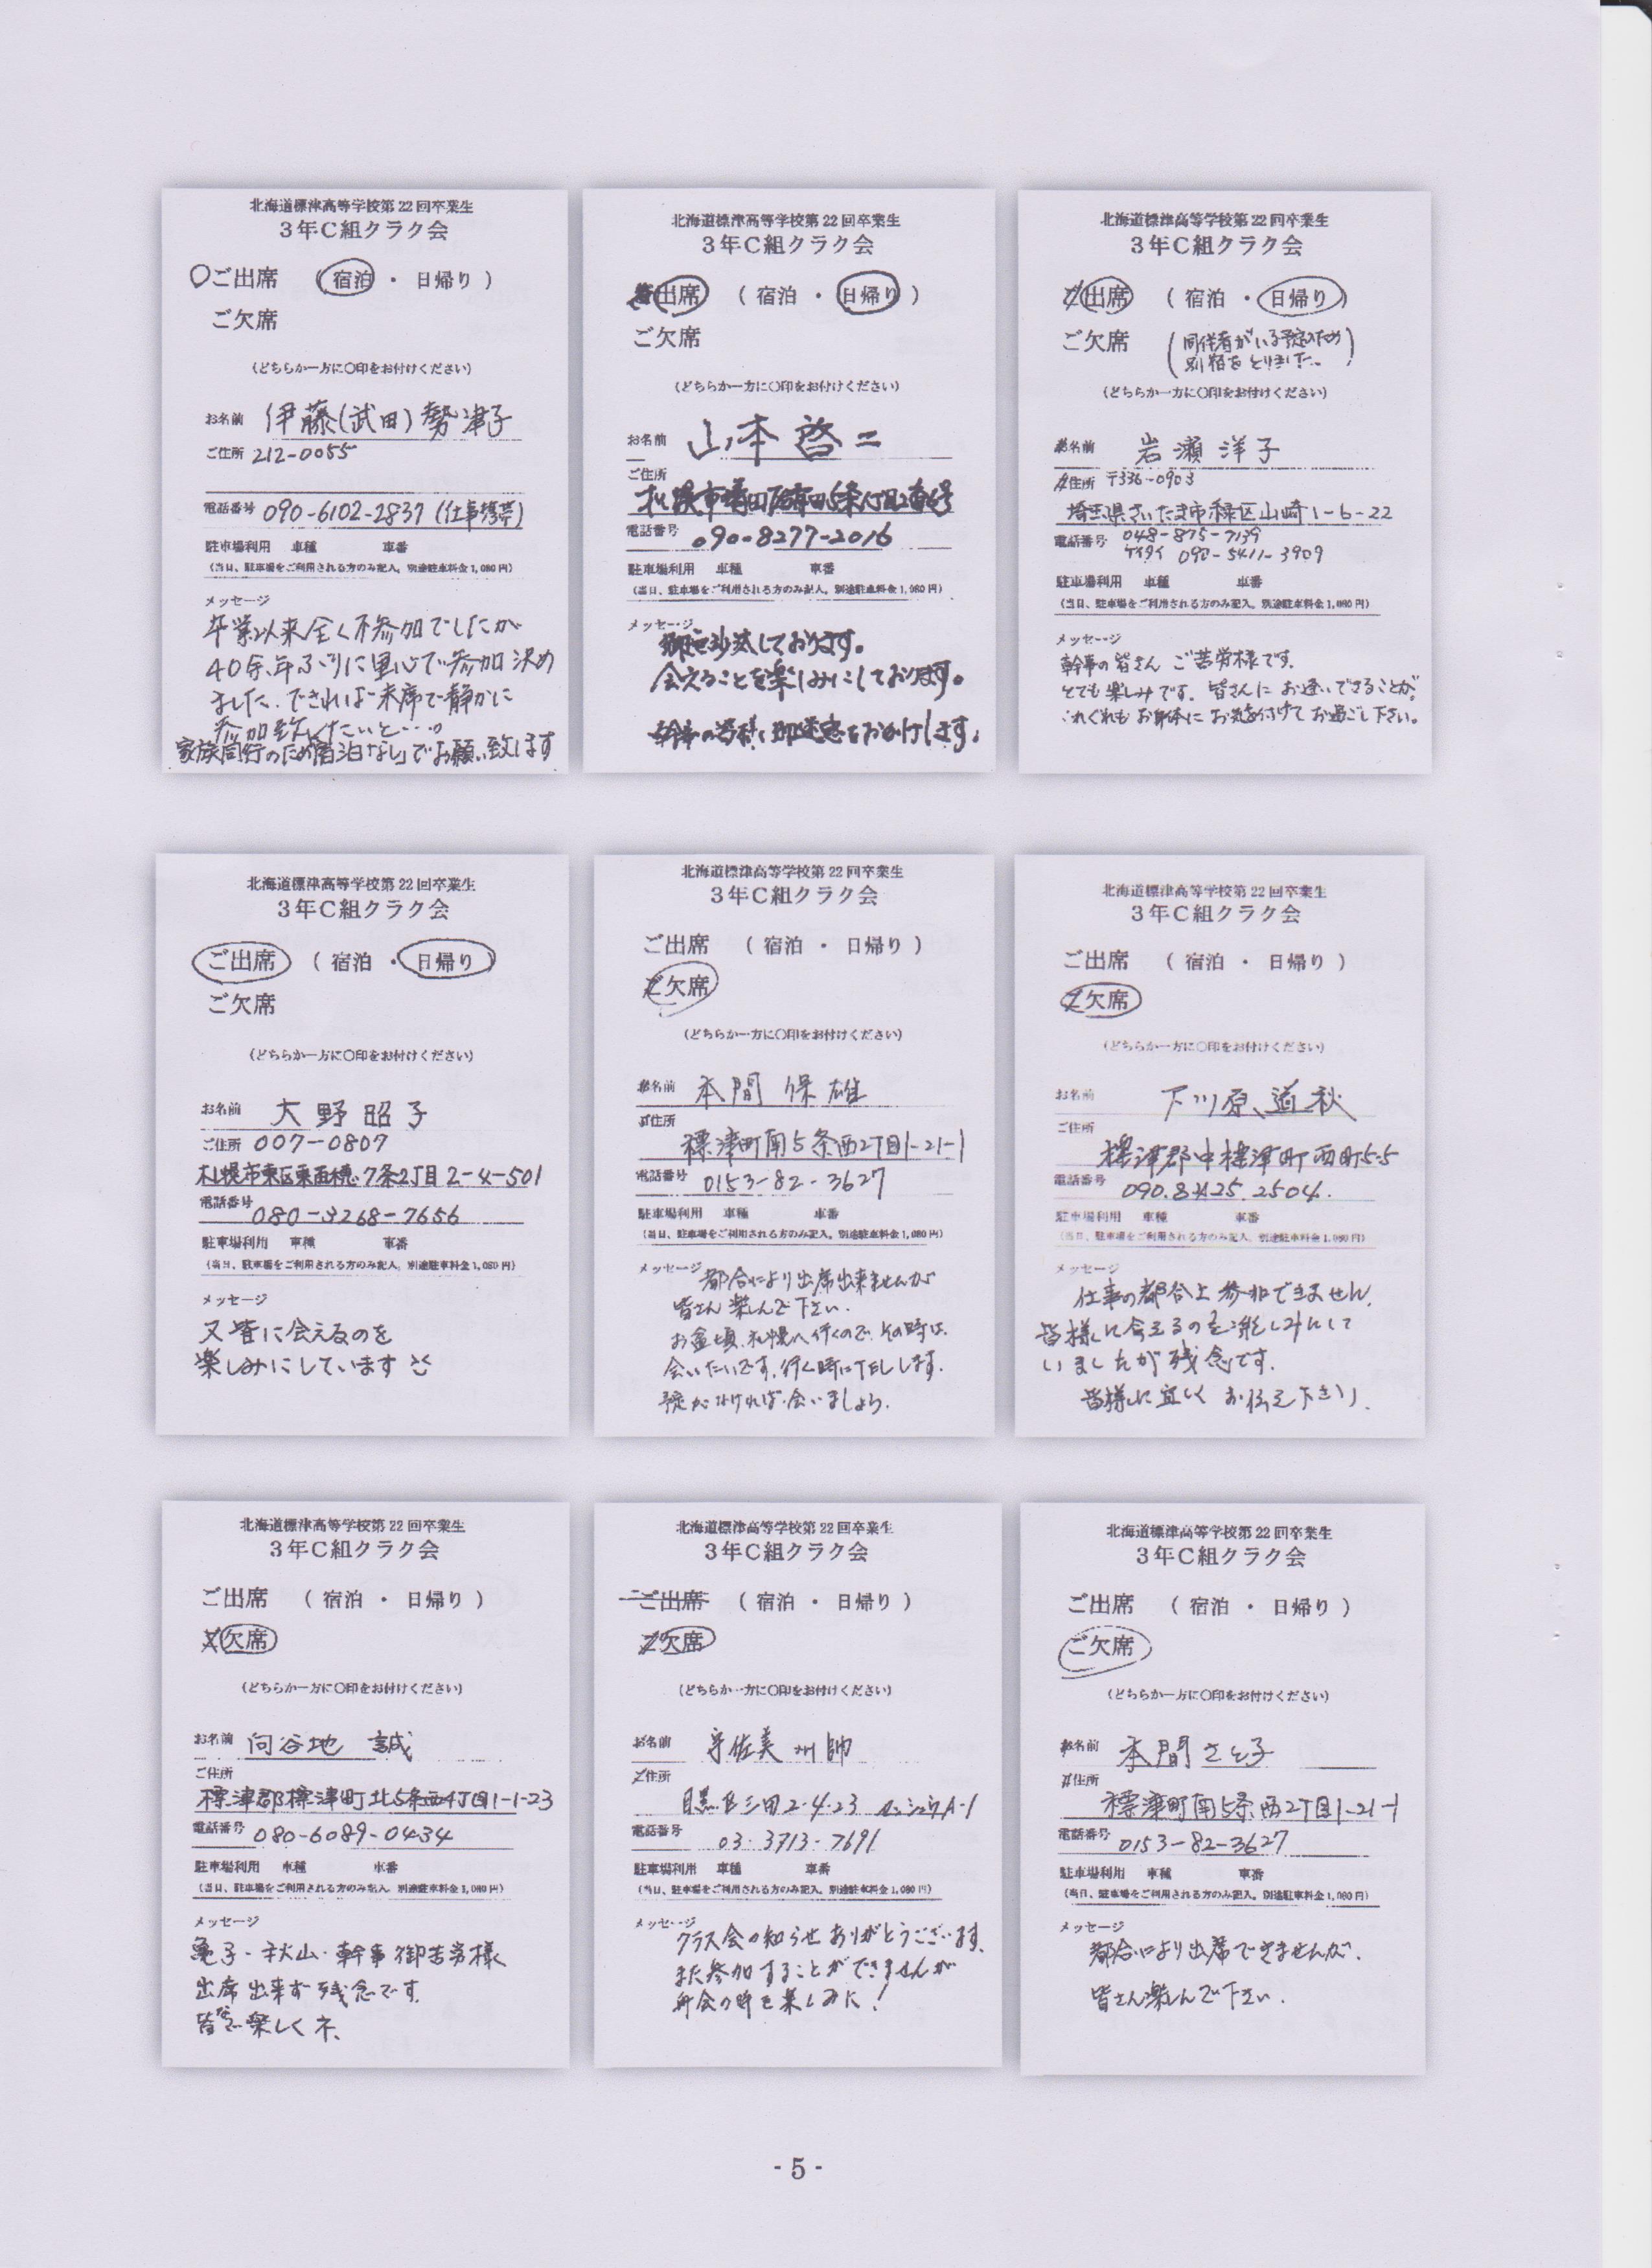 北海道標津高等学校第22回卒業生
3年C組クラク会
ご出席 (宿泊・日帰り)
ご欠席
(どちらか一方に○印をお付けください)
お名前 伊藤(武田)勢津子
ご住所 212-0055
電話番号 090-6102-2837(仕事携帯)
駐車場利用 車種 車番
(当日、駐車場をご利用される方のみ記入。別途駐車料金1,080円)
メッセージ
卒業以来全く不参加でしたが
40余年ぶりに里心で参加決め
ました。できれば末席で静かに
参加致したいと…。
家族同行のため「宿泊なし」でお願い致します
北海道標津高等学校第22回卒業生
3年C組クラク会
ご出席 (宿泊・日帰り)
ご欠席
(どちらか一方に○印をお付けください)
お名前 山本啓二
ご住所
札幌市
電話番号 090-8277-2016
駐車場利用 車種 車番
(当日、駐車場をご利用される方のみ記入。別途駐車料金1,080円)
メッセージ
御無沙汰しております。
会えることを楽しみにしております。
幹事の皆様、御迷惑をおかけします。
北海道標津高等学校第22回卒業生
3年C組クラク会
ご出席 (宿泊・日帰り)
ご欠席 (同伴者がいる予定のため
別宿をとりました。)
(どちらか一方に○印をお付けください)
お名前 岩瀬洋子
ご住所 〒336-0903
埼玉県さいたま市緑区山崎1-6-22
電話番号 048-875-7139
ケイタイ 090-5411-3909
駐車場利用 車種 車番
(当日、駐車場をご利用される方のみ記入。別途駐車料金1,080円)
メッセージ
幹事の皆さん ご苦労様です。
とても楽しみです。皆さんに お逢いできることが。
くれぐれもお身体に お気を付けて お過ごし下さい。
北海道標津高等学校第22回卒業生
3年C組クラク会
ご出席 (宿泊・日帰り)
ご欠席
(どちらか一方に○印をお付けください)
お名前 大野昭子
ご住所 007-0807
札幌市東区東苗穂7条2丁目2-4-501
電話番号 080-3268-7656
駐車場利用 車種 車番
(当日、駐車場をご利用される方のみ記入。別途駐車料金1,080円)
メッセージ
又皆に会えるのを
楽しみにしています
北海道標津高等学校第22回卒業生
3年C組クラク会
ご出席 (宿泊・日帰り)
ご欠席
(どちらか一方に○印をお付けください)
お名前 本間保雄
ご住所
標津町南5条西2丁目1-21-1
電話番号 0153-82-3627
駐車場利用 車種 車番
(当日、駐車場をご利用される方のみ記入。別途駐車料金1,080円)
メッセージ 都合により出席出来ませんが
皆さん楽しんで下さい。
お盆頃、札幌へ行くので、その時は、
会いたいです。行く時にTELします。
予定がなければ会いましょう。
北海道標津高等学校第22回卒業生
3年C組クラク会
ご出席 (宿泊・日帰り)
ご欠席
(どちらか一方に○印をお付けください)
お名前 下川原道秋
ご住所
標津郡中標津町西町5-5
電話番号 2504.
駐車場利用 車種 車番
(当日、駐車場をご利用される方のみ記入。別途駐車料金1,080円)
メッセージ
仕事の都合上参加できません。
皆様に会えるのを楽しみにして
いましたが残念です。
皆様に宜しくお伝え下さい。
北海道標津高等学校第22回卒業生
3年C組クラク会
ご出席 (宿泊・日帰り)
ご欠席
(どちらか一方に○印をお付けください)
お名前 向谷地 誠
ご住所
標津郡標津町北5条西4丁目1-1-23
電話番号 080-6089-0434
駐車場利用 車種 車番
(当日、駐車場をご利用される方のみ記入。別途駐車料金1,080円)
メッセージ
亀子・秋山・幹事御苦労様
出席出来ず残念です。
皆なで楽しくネ、
北海道標津高等学校第22回卒業生
3年C組クラク会
ご出席 (宿泊・日帰り)
ご欠席
(どちらか一方に○印をお付けください)
お名前 宇佐美
ご住所
目黒区三田2-4-23 A-1
電話番号 03-3713-7691
駐車場利用 車種 車番
(当日、駐車場をご利用される方のみ記入。別途駐車料金1,080円)
メッセージ
クラス会の知らせありがとうございます。
まだ参加することができませんが
再会の時を楽しみに!
北海道標津高等学校第22回卒業生
3年C組クラク会
ご出席 (宿泊・日帰り)
ご欠席
(どちらか一方に○印をお付けください)
お名前 本間さと子
ご住所
標津町南5条西2丁目1-21-1
電話番号 0153-82-3627
駐車場利用 車種 車番
(当日、駐車場をご利用される方のみ記入。別途駐車料金1,080円)
メッセージ
都合により出席できませんが、
皆さん楽しんで下さい。
- 5 -